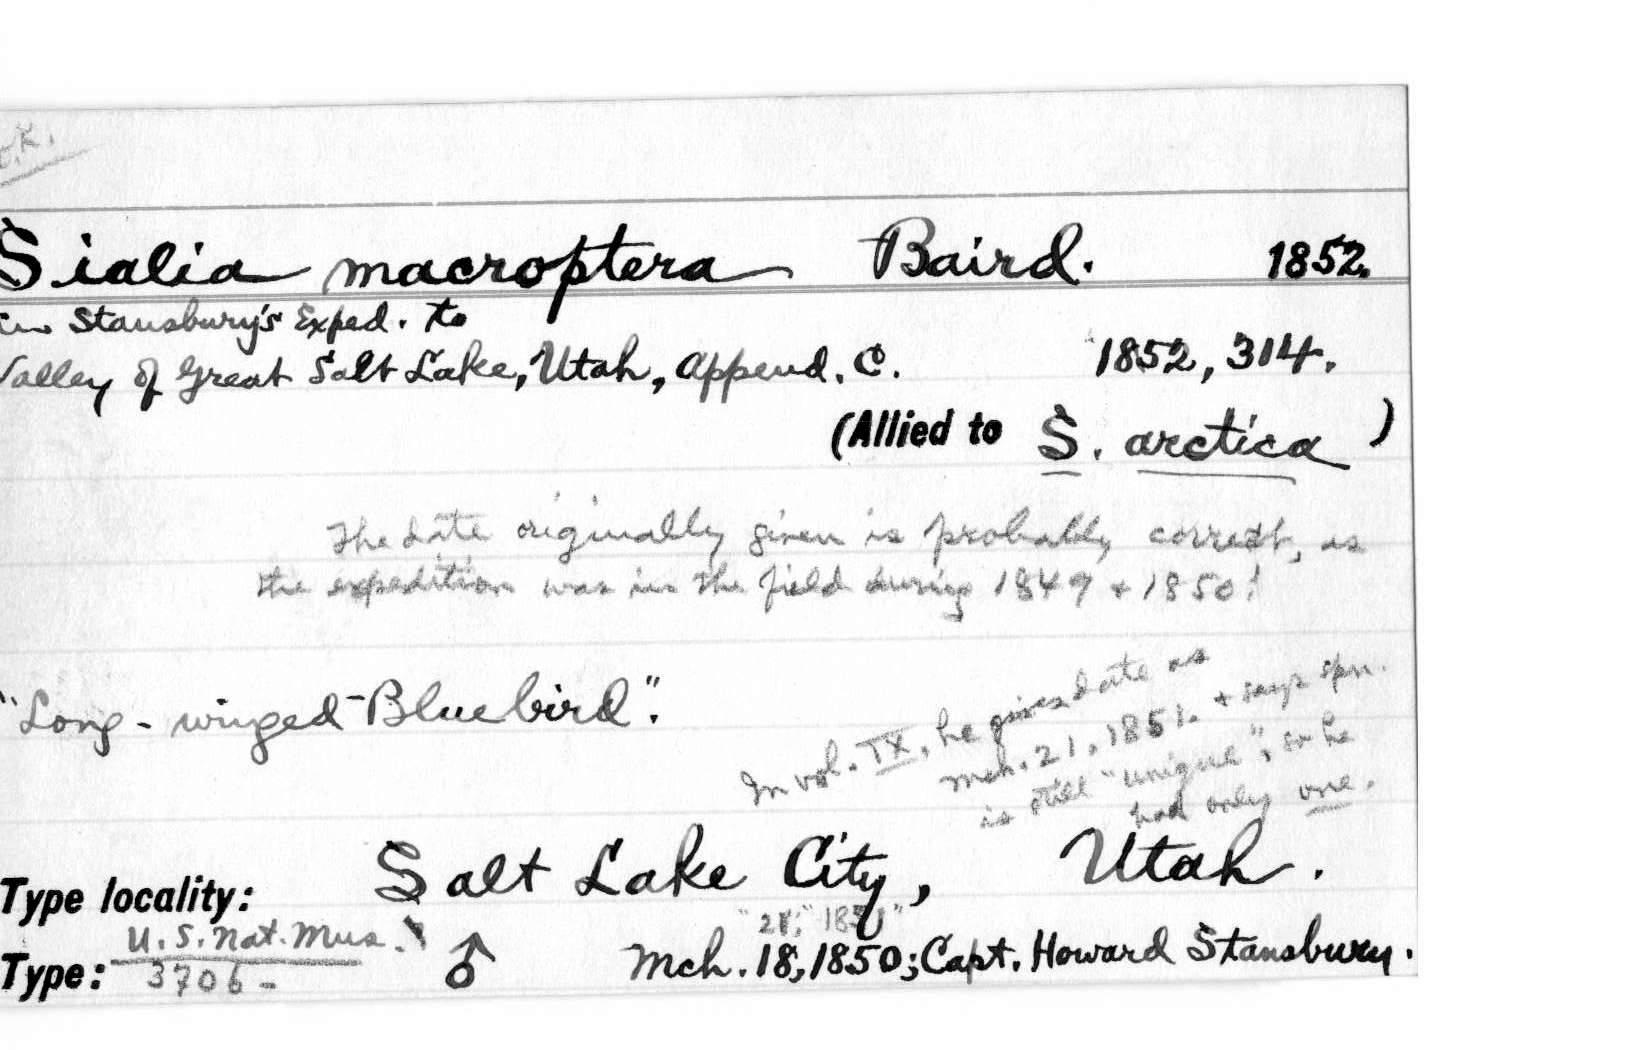 O.K.
Sialia macroptera Baird. 1852.
in Stansbury's Exped. to
Valley of Great Salt Lake, Utah, Append. C. 1852, 314.
(Allied to S. arctica )
The date originally given is probably correct, as
the expedition was in the field during 1849 + 1850!
"Long-winged-Bluebird".
In vol. IX, he gives date as
Mch. 21, 1851. + says spn.
is still "unique", so he
had only one.
Type locality: Salt Lake City, Utah.
U.S. Nat. Mus.
Type: 3706- ♂ Mch. 18, 1850; Capt. Howard Stansbury.